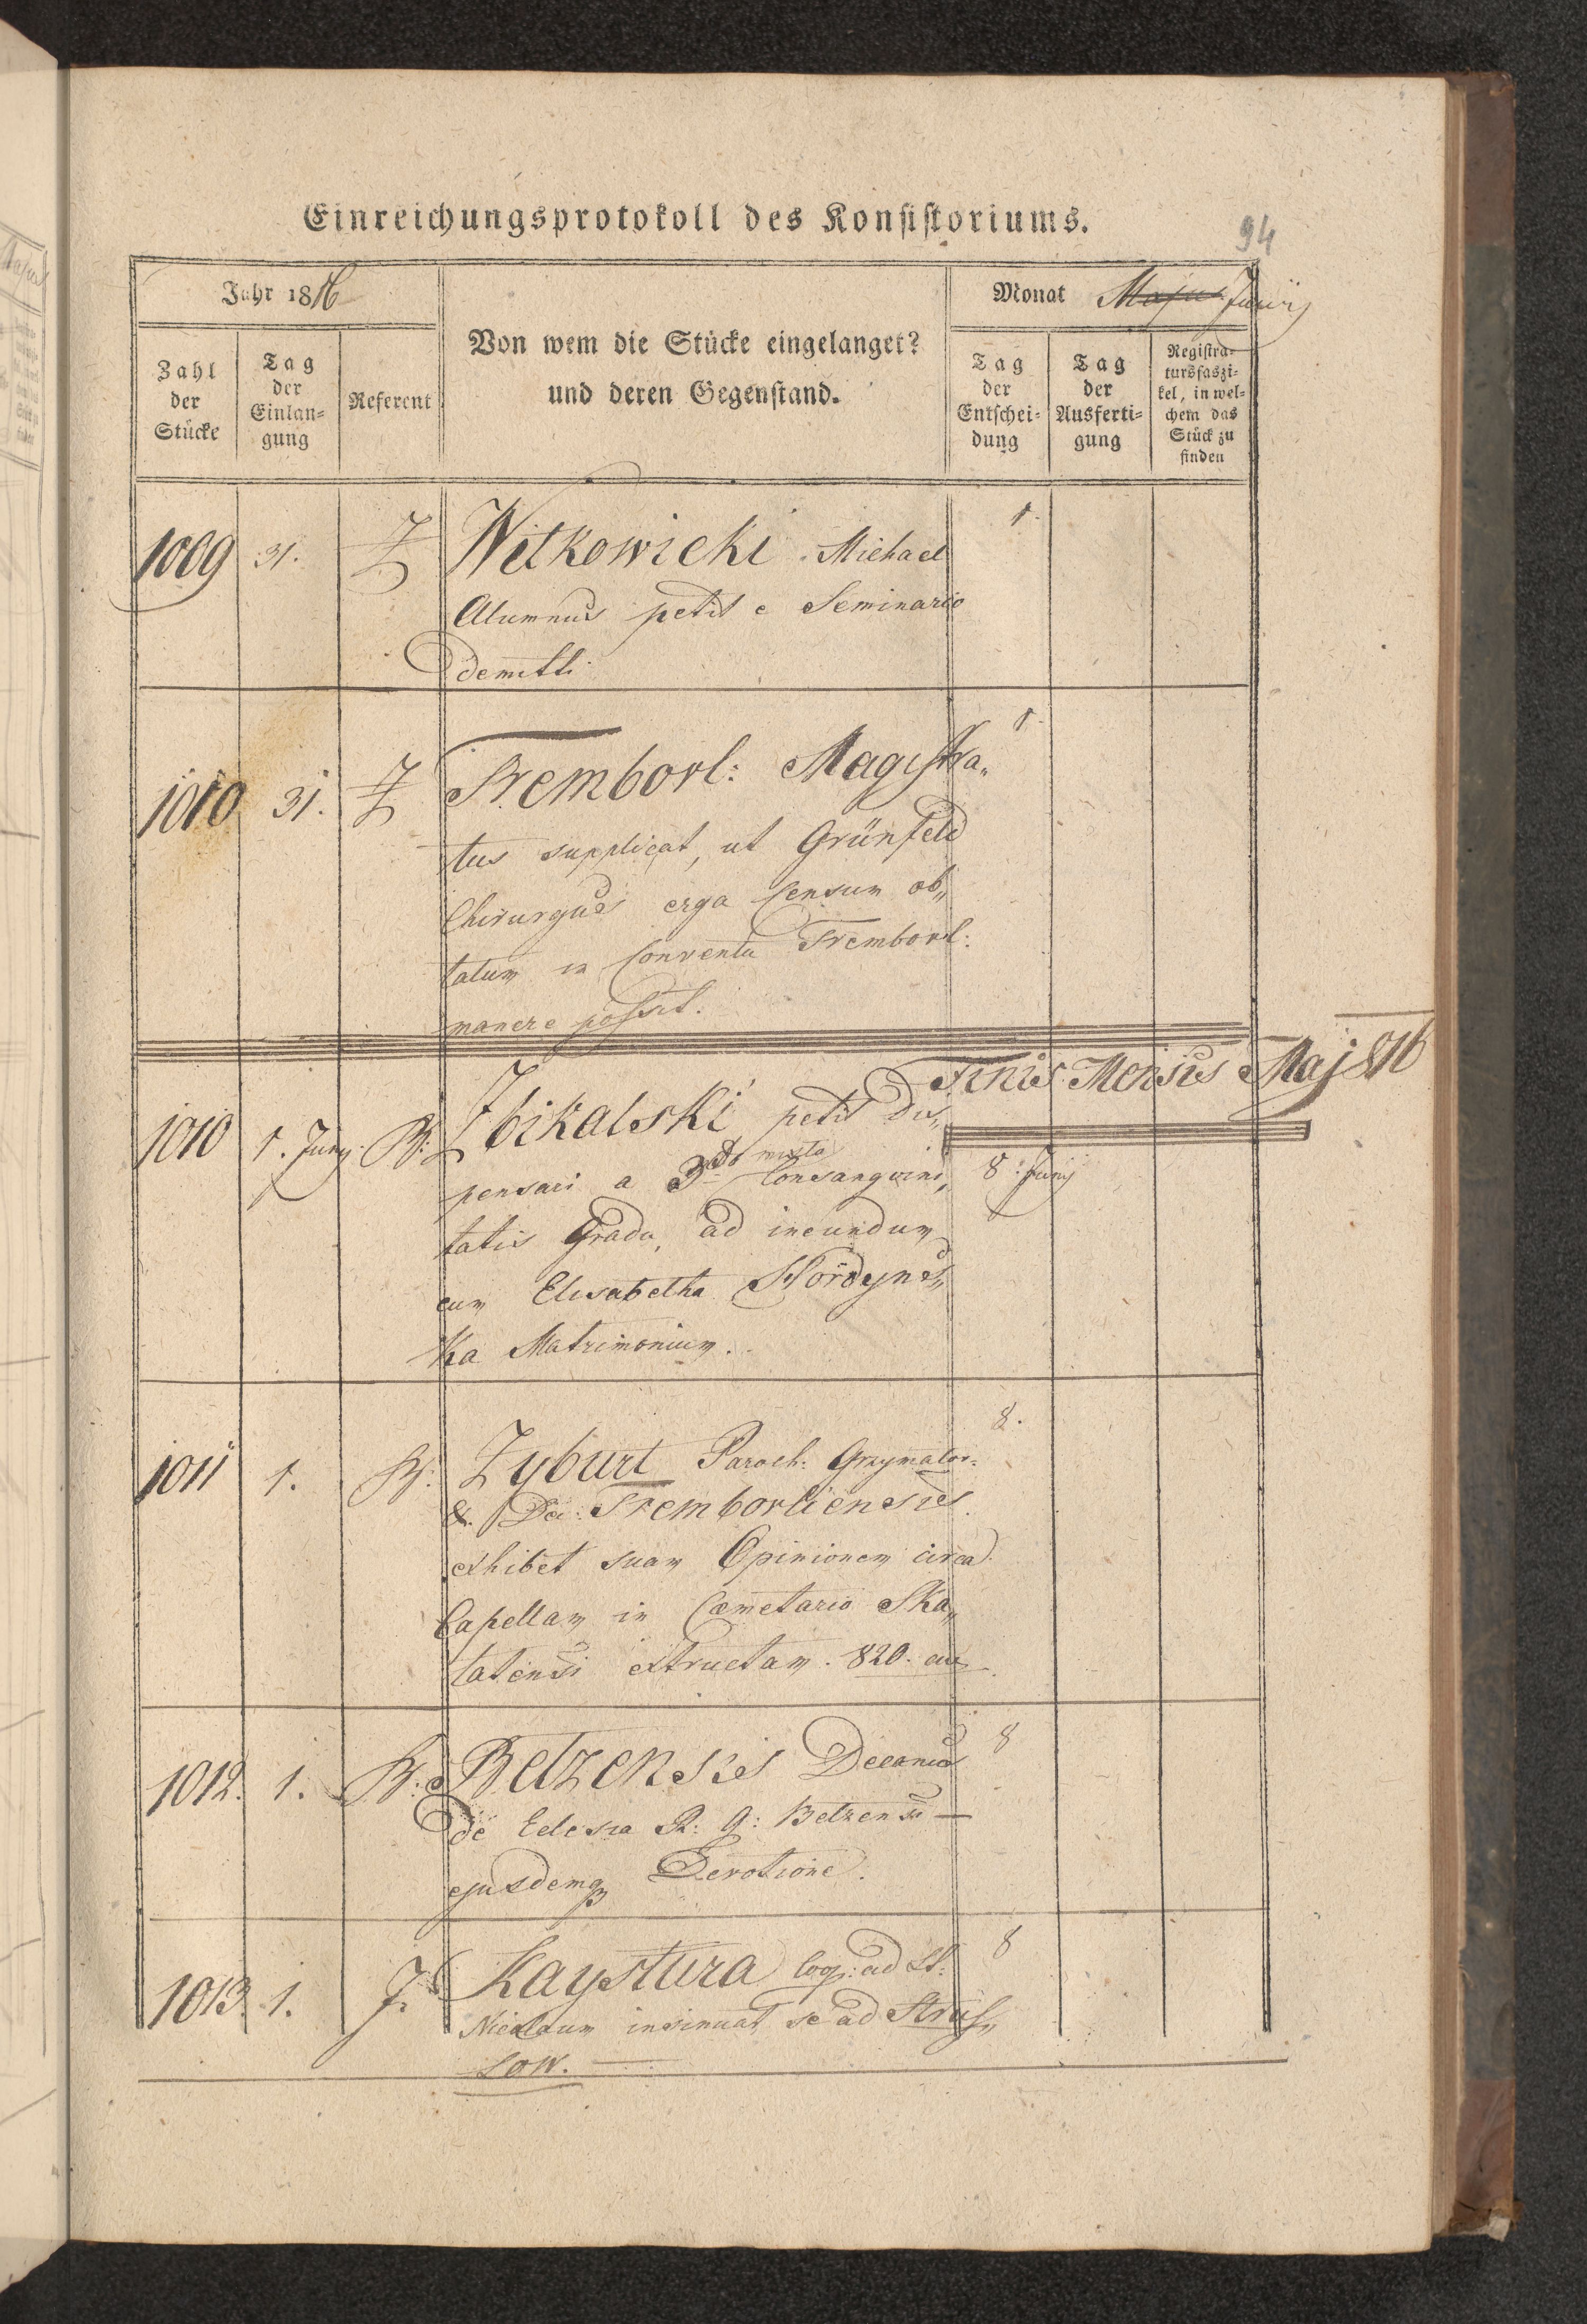 Einreichungsprotokoll des Konsistoriums.
94
Jahr 1816
Monat Majus Junÿ
Von wem die Stücke eingelanget?
und deren Gegenstand.
Zahl
der
Stücke
Tag
der
Einlan-
gung
Referent
Tag
der
Entschei-
dung
Tag
der
Ausferti-
gung
Registra-
tursfaszi-
kel, in wel-
chem das
Stück zu
finden
1009 31. Z Witkowicki Michael 1.
Alumnus petit e Seminario
demitti
1010 31. Z Trembovl: Magistra„ 1.
tus supplicat, ut Grünfeld
Chirurgus erga Censum ob„
latum in Conventu Trembovl:
manere possit.
Finis Mensis Maj 816
1010 1. Juny. Zbikalski petit dis„
pensari a 3º mixto Consanguini„ 8 Junÿ
tatis Gradu, ad ineundum
cum Elisabetha Hordyns„
ka Matrimonium.
1011 1. Zyburt Paroch: Grzymalov: 8.
& Dec: Trembovliensis
exhibet suam Opinionem circa
Capellam in Cæmetario Ska„
latensi extructam. 820. au
1012. 1. Belzensis Decanus 8
de Eclesia R: G: Belzensi —
ejusdemq Devotione.
1013. 1. J. Kaystura Coop: ad St: 8
Nicolaum insinuat se ad Strus„
sow. —